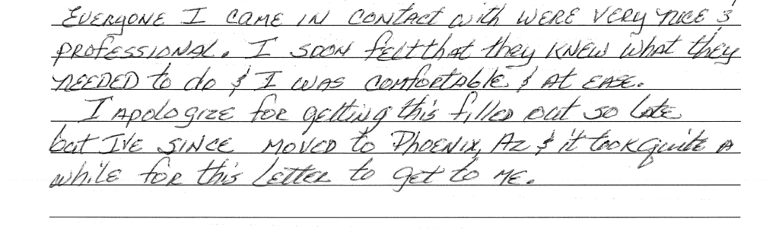 EVERYONE I CAME IN CONTACT with WERE VERY NICE &
PROFESSIONAL. I SOON felt that they KNEW what they
NEEDED to do & I WAS COMFORTABLE & AT EASE.
I APOLOGIZE for getting this filled out so late
but I'VE SINCE MOVED to PHOENIX, AZ & it took quite A
while for this letter to get to ME.